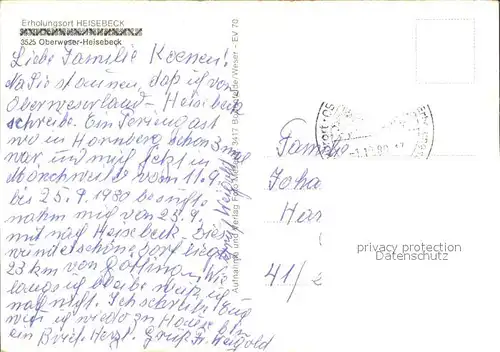 Erholungsort HEISEBECK
3525 Oberweser-Heisebeck
Liebe Familie Koenen!
Na Sie staunen, daß ich vom
Oberweserland - Heisebeck
schreibe. Ein Feriengast
wo in Hornberg schon 3 mal
war und mich jetzt in
Mönchweiler vom 11.9.
bis 25.9.1980 besuchte
nahm mich vom 25.9.
mit nach Heisebeck. Dieses
wunderschöne Dorf liegt
23 km von Göttingen. Wie
lange ich bleibe weiß ich
noch nicht. Ich schreibe Euch
wenn ich wieder zu Hause bin
ein Brief. Herzl. Grüße Fr. Weigold
Aufnahme und Verlag Foto 3417 /Weser - EV 70
Familie
Joha
Har
41/2
privacy protection
Datenschutz